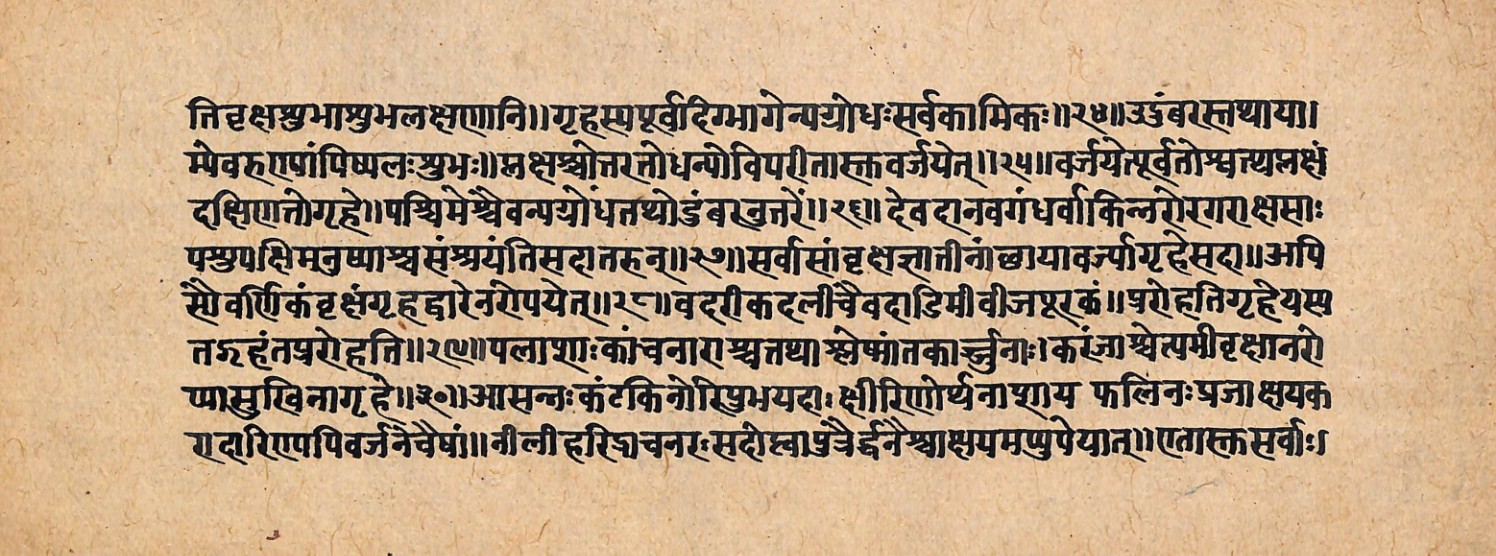 तिवृक्षशुभाशुभलक्षणानि॥गृहस्यपूर्वादिग्भागेन्यग्रोधःसर्वकामिकः॥२४॥उडुंबरस्तथाया।
म्येवरुणपांपिप्पलःशुभः॥प्लक्षश्चोत्तरतोधन्योविपरीतास्तुवर्जयेत्॥२५॥वर्जयेत्पूर्वतोश्वत्थप्लक्षं
दक्षिणतोगृहे॥पश्चिमेश्चैवन्यग्रोधंतथोडुंबरमुत्तरे॥२६॥देवदानवगंधर्वाकिन्नरोरगराक्षसाः
पशुपक्षिमनुष्याश्चसंश्रयंतिसदातरून्॥२७॥सर्वासांवृक्षजातीनांछायावर्ज्यागृहेसदा॥अपि
सौवर्णिकंवृक्षंगृहद्वारेनरोपयेत्॥२८॥वदरीकदलीचैवदाडिमीवीजपूरकं॥प्ररोहतिगृहेयस्य
तद्गृहंतप्ररोहति॥२९॥पलाशाःकांचनाराश्चतथाश्लेष्मांतकार्ज्जुनाः।करंजाश्चेत्यमीवृक्षानरो
प्यासुखिनागृहे॥३०॥आसन्नःकंटकिनोरिपुभयदाःक्षीरिणोर्थनाशायफलिनःप्रजाक्षयक
रादारिणपपिवर्जनैचैषां॥नीलीहरिद्राचनरःसदोप्त्वापुत्रैर्द्धनैश्चाक्षयमप्युपेयात्॥एतास्तुसर्वाः।